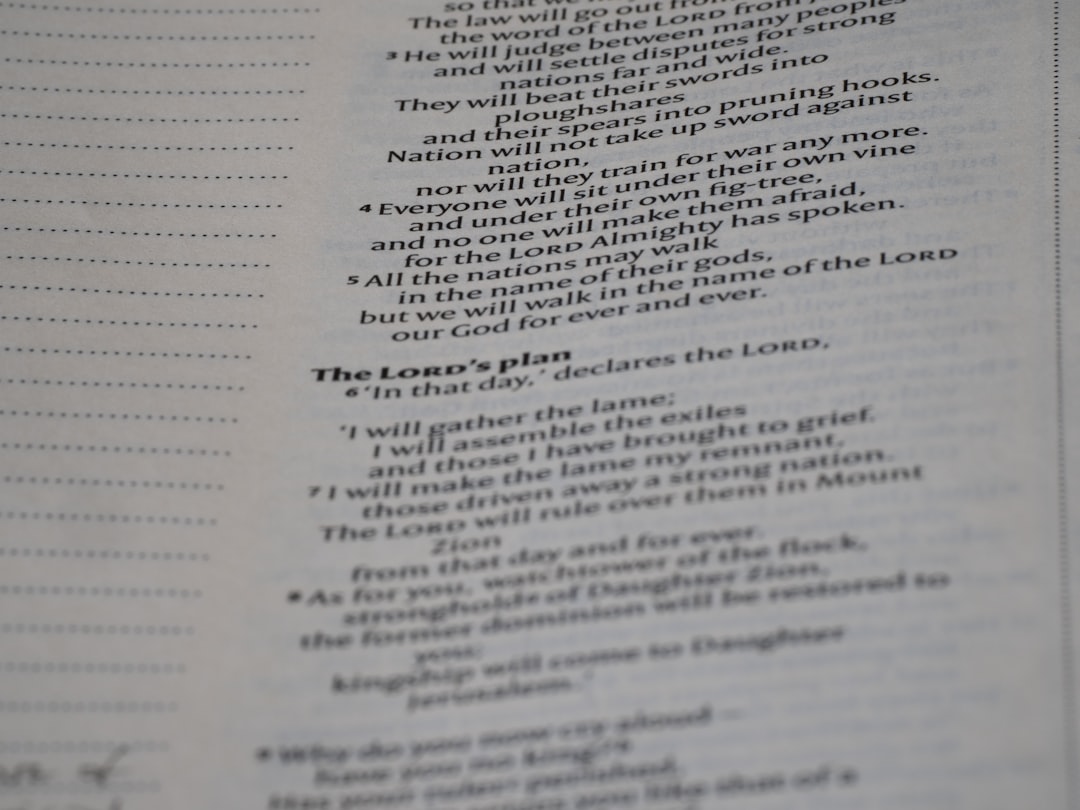 so that we may
The law will go out from
the word of the LORD from
3 He will judge between many peoples
and will settle disputes for strong
nations far and wide.
They will beat their swords into
ploughshares
and their spears into pruning hooks.
Nation will not take up sword against
nation,
nor will they train for war any more.
4 Everyone will sit under their own vine
and under their own fig-tree,
and no one will make them afraid,
for the LORD Almighty has spoken.
5 All the nations may walk
in the name of their gods,
but we will walk in the name of the LORD
our God for ever and ever.
The LORD's plan
6 'In that day,' declares the LORD,
'I will gather the lame;
I will assemble the exiles
and those I have brought to grief.
7 I will make the lame my remnant,
those driven away a strong nation.
The LORD will rule over them in Mount
Zion
from that day and for ever.
8 As for you, watchtower of the flock,
stronghold of Daughter Zion,
the former dominion will be restored to
you;
kingship will come to Daughter
Jerusalem.'
Why do you now cry aloud –
have you no king